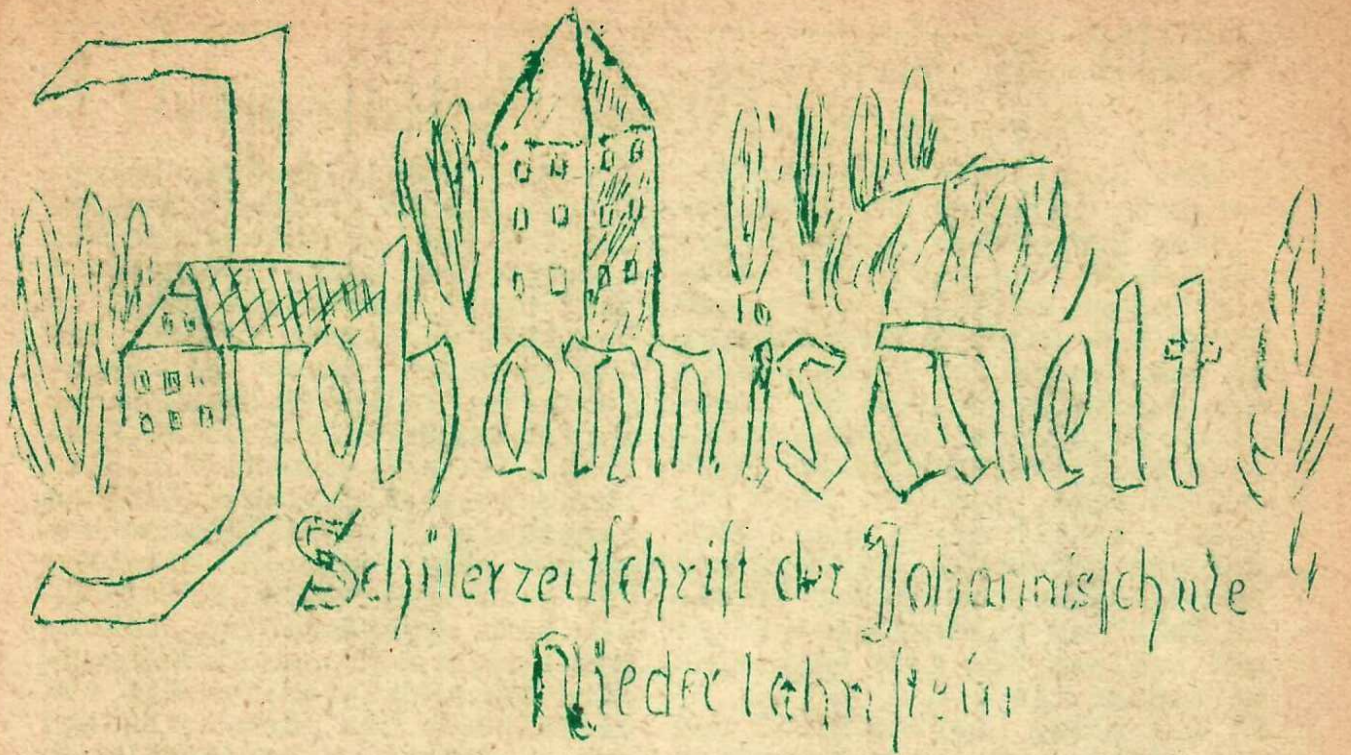 JohannisWelt
Schülerzeitſchrift der Johannisſchule
Niederlahnſtein